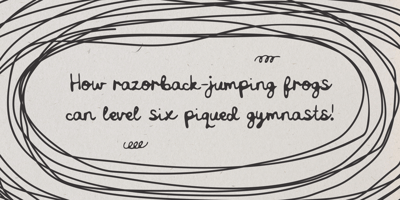 How razorback-jumping frogs
can level six piqued gymnasts!